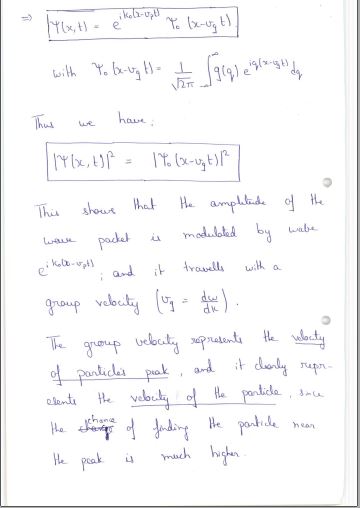 ⇒ Ψ(x,t) = e^{ik₀(x-vₚt)} Ψ₀(x-v_g t)
with Ψ₀(x-v_g t) = 1/√2π ∫_{-∞}^{∞} g(q) e^{iq(x-v_g t)} dq
Thus we have:
|Ψ(x,t)|² = |Ψ₀(x-v_g t)|²
This shows that the amplitude of the
wave packet is modulated by wave
e^{ik₀(x-vₚt)}; and it travells with a
group velocity (v_g = dω/dk).
The group velocity represents the velocity
of particle's peak, and it clearly repr-
esents the velocity of the particle, since
the chance of finding the particle near
the peak is much higher.